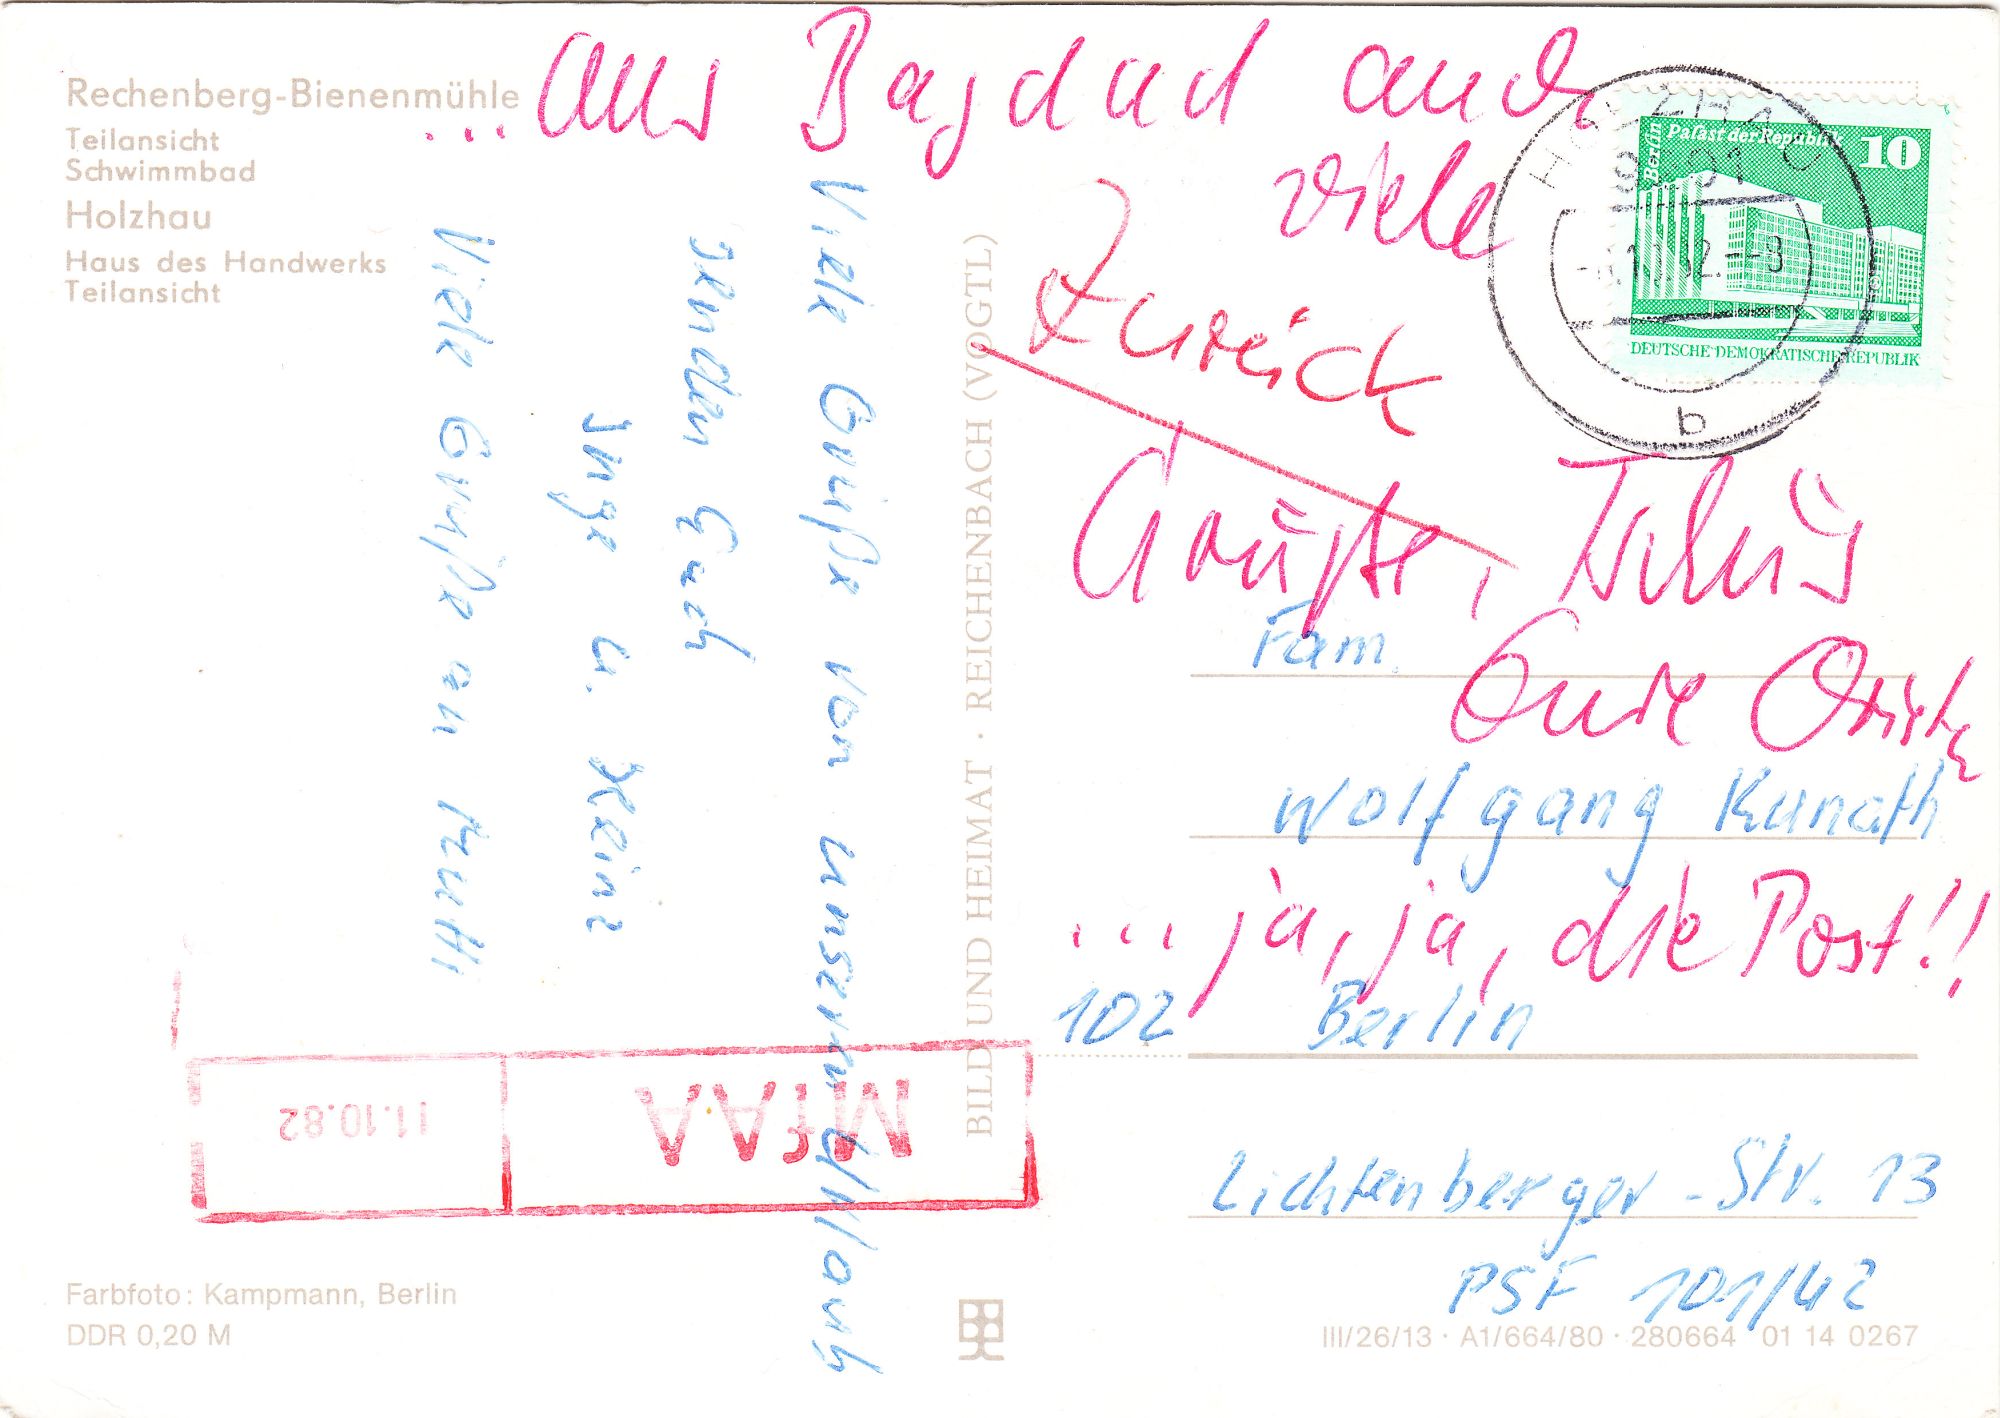 Rechenberg-Bienenmühle
Teilansicht
Schwimmbad
Holzhau
Haus des Handwerks
Teilansicht
... aus Bagdad auch
viele
zurück
Grüße, Tschüs
Eure
... ja, ja, die Post!!
Viele Grüße von unserem Urlaub
senden Euch
Inge u. Heinz
Viele Grüße an Mutti
BILD UND HEIMAT · REICHENBACH (VOGTL)
HOLZHAU
b
Berlin
Palast der Republik
10
DEUTSCHE DEMOKRATISCHE REPUBLIK
Fam.
Wolfgang Kunath
102 Berlin
Lichtenberger-Str. 13
PSF 101/42
MfAA
11.10.82
Farbfoto: Kampmann, Berlin
DDR 0,20 M
III/26/13 · A1/664/80 · 280664 01 14 0267